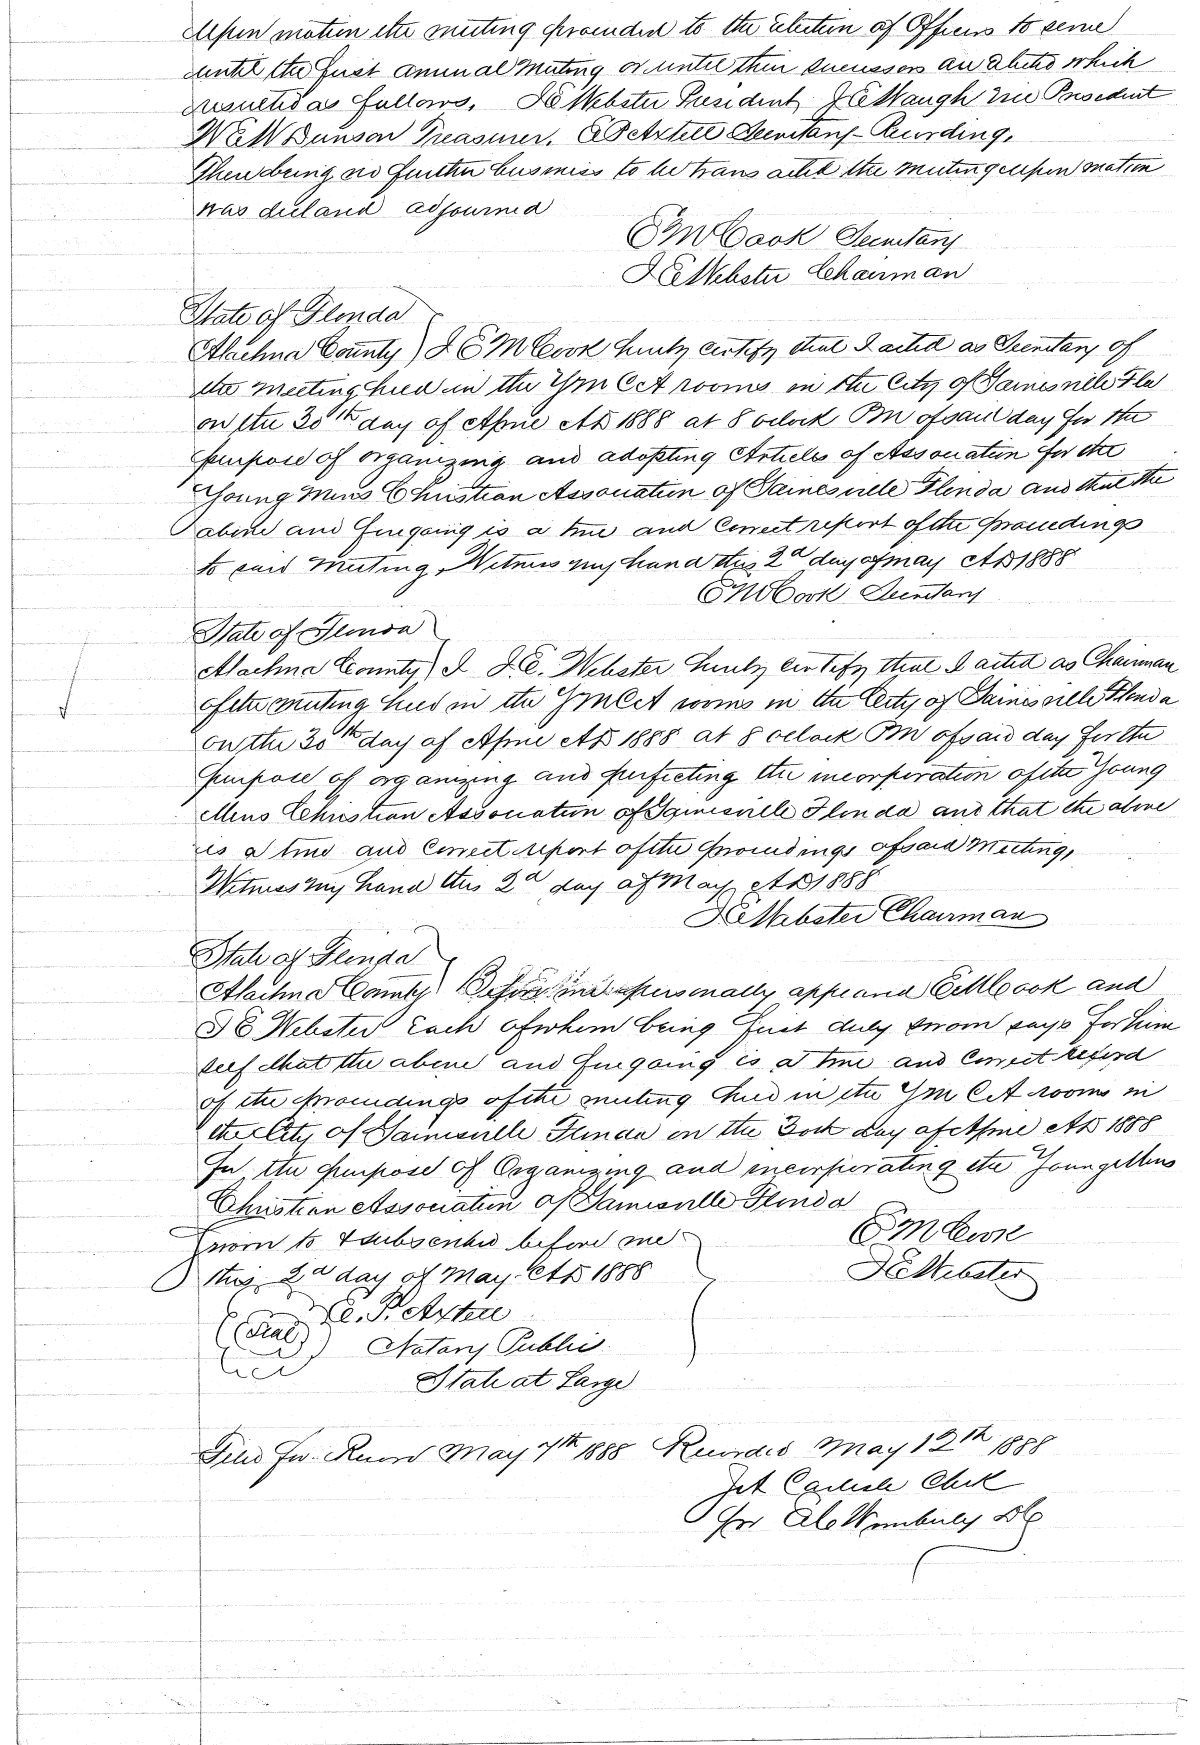 Upon motion the meeting proceeded to the election of Officers to serve
until the first annual Meeting or until their successors are elected which
resulted as follows. J E Webster President, J E Waugh Vice President
W W Dunson Treasurer. E P Axtell Secretary- Recording.
There being no further business to be transacted the meeting upon motion
was declared adjourned
E M Cook Secretary
J E Webster Chairman
State of Florida
Alachua County ) I E M Cook hereby certify that I acted as Secretary of
the Meeting held in the YMCA rooms in the City of Gainesville Fla
on the 30th day of April AD 1888 at 8 oclock PM of said day for the
purpose of organizing and adopting Articles of Association for the
Young Mens Christian Association of Gainesville Florida and that the
above and foregoing is a true and correct report of the proceedings
to said Meeting, Witness my hand this 2d day of May AD 1888
E M Cook Secretary
State of Florida
Alachua County ) I J.E. Webster hereby certify that I acted as Chairman
of the meeting held in the YMCA rooms in the City of Gainesville Florida
on the 30th day of April AD 1888 at 8 oclock PM of said day for the
purpose of organizing and perfecting the incorporation of the Young
Mens Christian Association of Gainesville Florida and that the above
is a true and correct report of the proceedings of said Meeting,
Witness my hand this 2d day of May AD 1888
J E Webster Chairman
State of Florida
Alachua County ) Before me personally appeared E M Cook and
J E Webster Each of whom being first duly sworn says for him
self that the above and foregoing is a true and correct record
of the proceedings of the meeting held in the YMCA rooms in
the City of Gainesville Florida on the 30th day of April AD 1888
For the purpose of Organizing and incorporating the Young Mens
Christian Association of Gainesville Florida
Sworn to & subscribed before me
E M Cook
this 2d day of May AD 1888
J E Webster
E. P. Axtell
(Seal)
Notary Public
State at Large
Filed for Record May 7th 1888 Recorded May 12th 1888
Carlisle Clerk
Per Wimberly DC